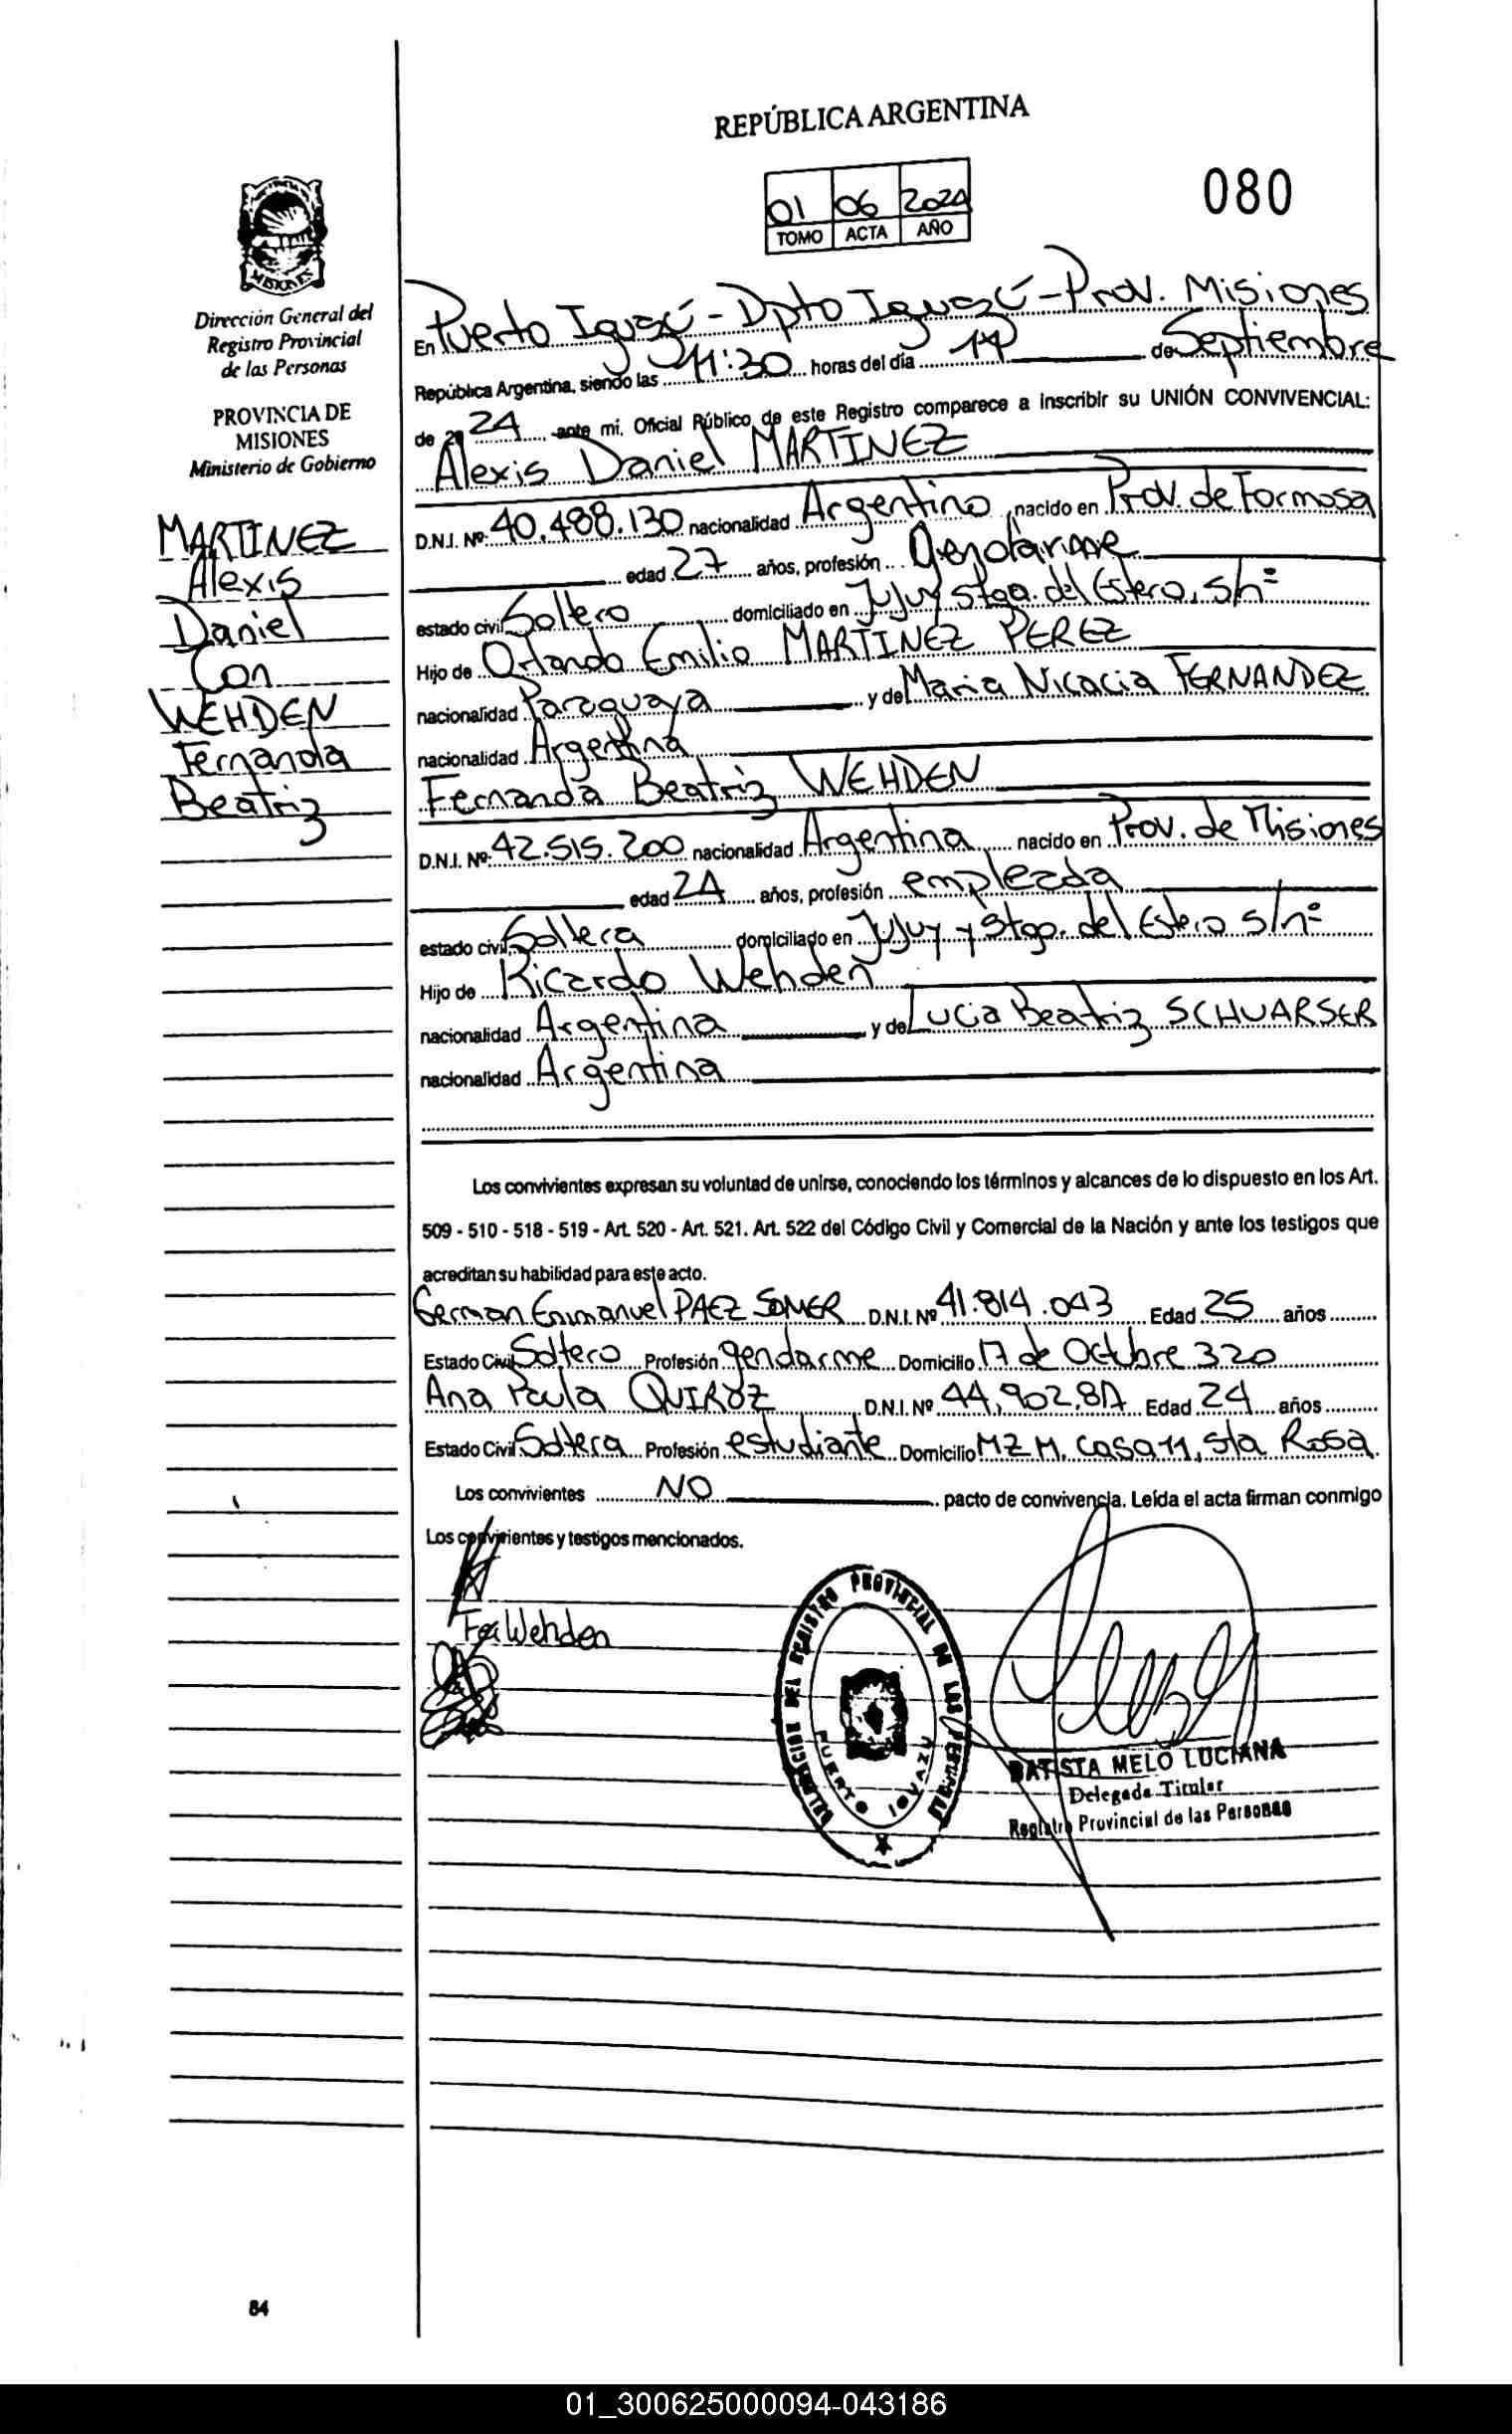 REPÚBLICA ARGENTINA
01 06 2024
TOMO ACTA AÑO
080
MISIONES
Dirección General del
Registro Provincial
de las Personas
PROVINCIA DE
MISIONES
Ministerio de Gobierno
MARTINEZ
Alexis
Daniel
Con
WEHDEN
Fernanda
Beatriz
En Puerto Iguazú - Dpto Iguazú - Prov. Misiones
República Argentina, siendo las 11:30 horas del día de Septiembre
de 20 24 ante mi, Oficial Público de este Registro comparece a inscribir su UNIÓN CONVIVENCIAL:
Alexis Daniel MARTINEZ
D.N.I. Nº: 40.488.130 nacionalidad Argentino nacido en Prov. de Formosa
edad 27 años, profesión Gendarme
estado civil Soltero domiciliado en Jujuy Stgo. del Estero, s/nº
Hijo de Orlando Emilio MARTINEZ PEREZ
nacionalidad Paraguaya y de Maria Nicacia FERNANDEZ
nacionalidad Argentina
Fernanda Beatriz WEHDEN
D.N.I. Nº: 42.515.200 nacionalidad Argentina nacido en Prov. de Misiones
edad 24 años, profesión empleada
estado civil Soltera domiciliado en Jujuy y Stgo. del Estero s/nº
Hijo de Ricardo Wehden
nacionalidad Argentina y de Lucia Beatriz SCHUARSER
nacionalidad Argentina
Los convivientes expresan su voluntad de unirse, conociendo los términos y alcances de lo dispuesto en los Art.
509 - 510 - 518 - 519 - Art. 520 - Art. 521. Art. 522 del Código Civil y Comercial de la Nación y ante los testigos que
acreditan su habilidad para este acto.
German Emmanuel PAEZ SOMER D.N.I. Nº 41.814.043 Edad 25 años
Estado Civil Soltero Profesión gendarme Domicilio 17 de Octubre 320
Ana Paula QUIROZ D.N.I. Nº Edad 24 años
Estado Civil Soltera Profesión estudiante Domicilio MZ M, casa 11, Sta Rosa
Los convivientes NO pacto de convivencia. Leída el acta firman conmigo
Los convivientes y testigos mencionados.
Fer Wehden
DELEGACION DEL REGISTRO PROVINCIAL DE LAS PERSONAS
PUERTO IGUAZU
BATISTA MELO LUCIANA
Delegada Titular
Registro Provincial de las Personas
84
01_300625000094-043186